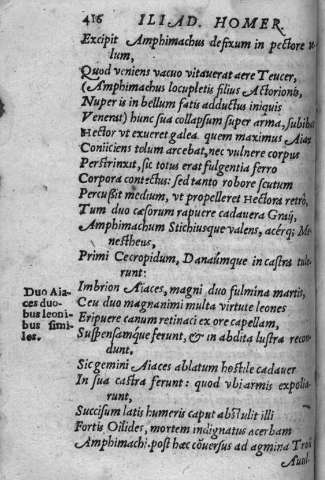 416 ILIAD. HOMER.
Excipit Amphimachus defixum in pectore te
lum,
Quod veniens vacuo vitauerat aere Teucer,
(Amphimachus locupletis filius Actorionis,
Nuper is in bellum fatis adductus iniquis
Venerat) hunc sua collapsum super arma, subibat
Hector vt exueret galea. quem maximus Aiax
Coniiciens telum arcebat, nec vulnere corpus
Perstrinxit, sic totus erat fulgentia ferro
Corpora contectus: sed tanto robore scutum
Percußit medium, vt propelleret Hectora retrò,
Tum duo cæsorum rapuere cadauera Graij,
Amphimachum Stichiusque valens, acérq; Me
nestheus,
Primi Cecropidum, Danaûmque in castra tule
runt:
Duo Aia-
ces duo-
bus leoni-
bus simi-
les.
Imbrion Aiaces, magni duo fulmina martis,
Ceu duo magnanimi multa virtute leones
Eripuere canum retinaci ex ore capellam,
Suspensamque ferunt, & in abdita lustra recon
dunt.
Sic gemini Aiaces ablatum hostile cadauer
In sua castra ferunt: quod vbi armis expolia-
runt,
Succisum latis humeris caput abstulit illi
Fortis Oilides, mortem indignatus acerbam
Amphimachi. post hæc cōuersus ad agmina Troū
Auol-